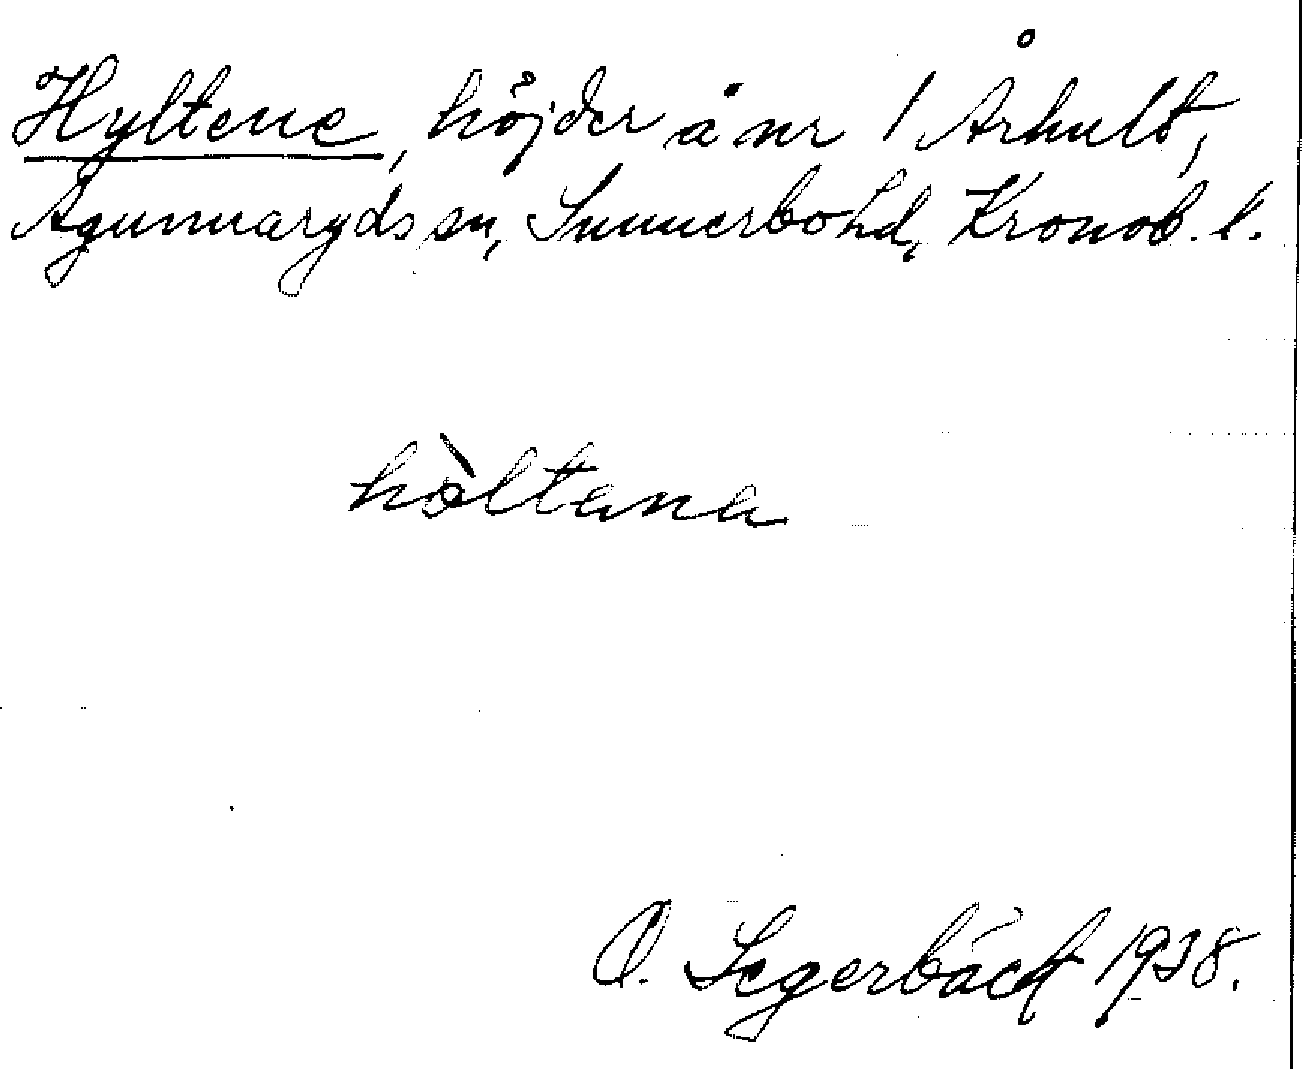 Hyltene, höjder å nr 1 Århult,
Agunnaryds sn, Sunnerbo hd, Kronob. l.
hø̀ltana
O. Segerbäck 1938.